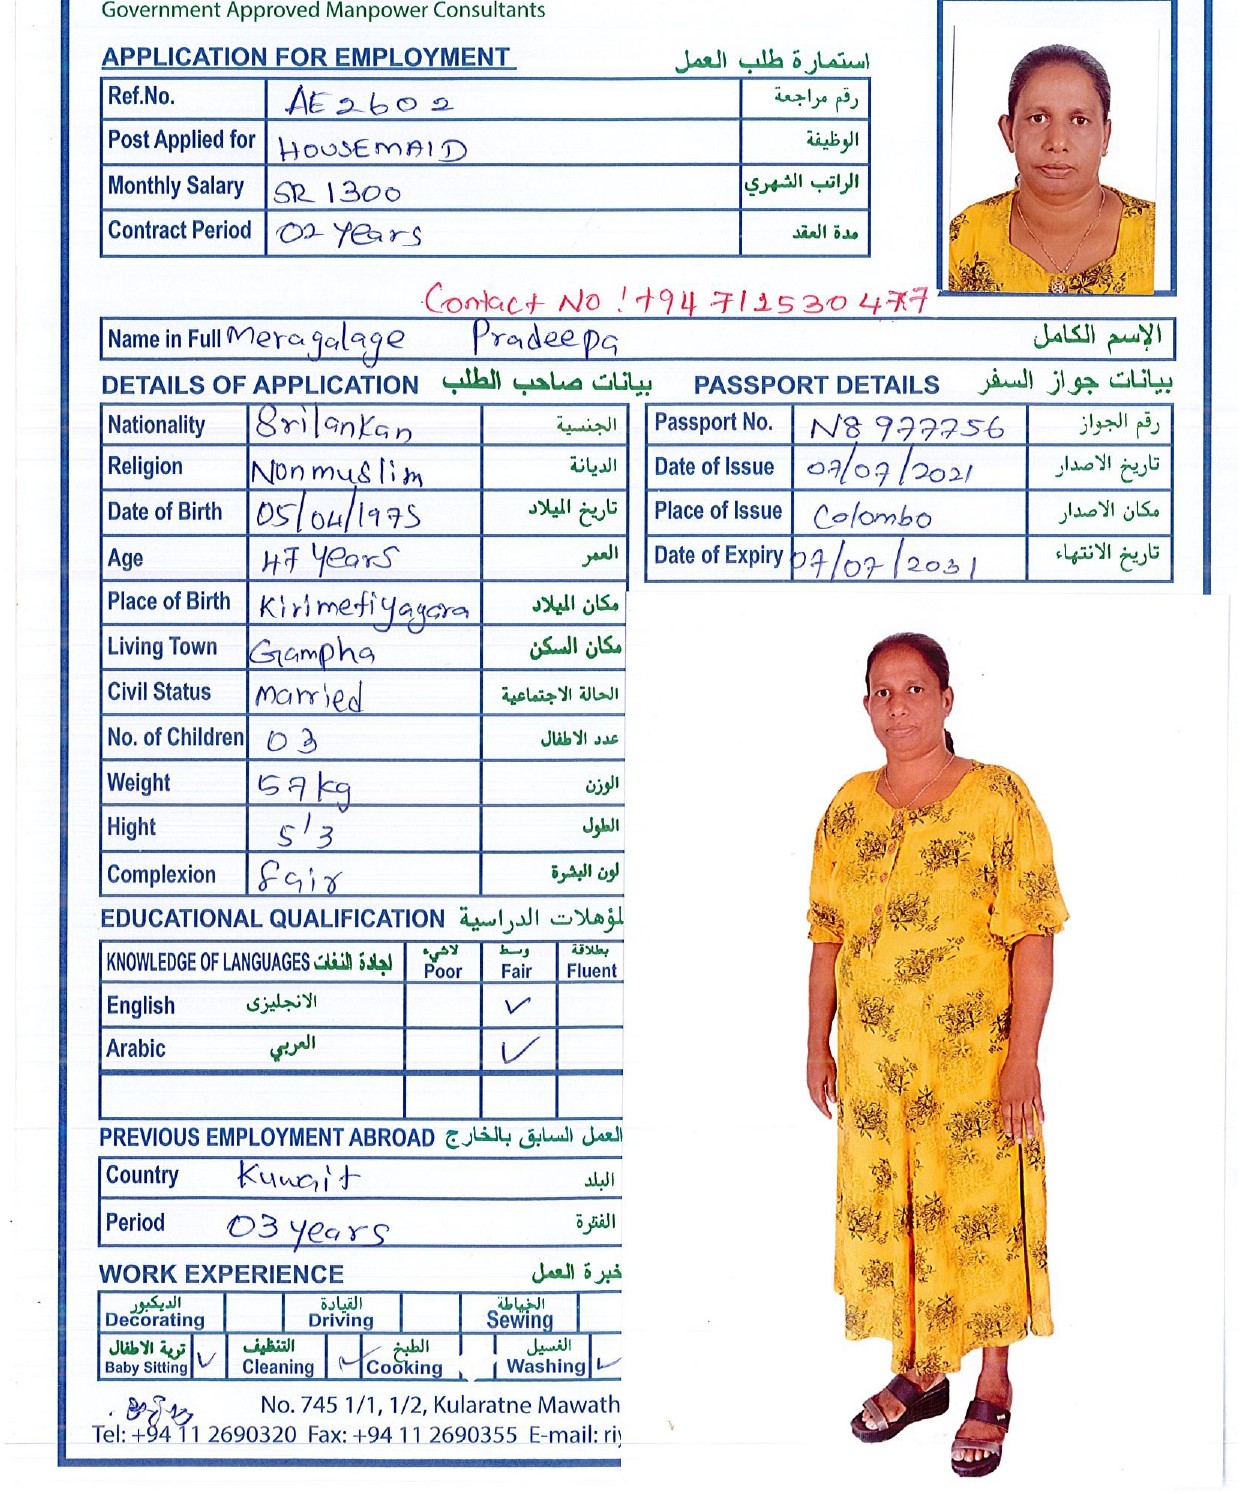 Government Approved Manpower Consultants
APPLICATION FOR EMPLOYMENT استمارة طلب العمل
Ref.No. AE 2602 رقم مراجعة
Post Applied for HOUSEMAID الوظيفة
Monthly Salary SR 1300 الراتب الشهري
Contract Period 02 Years مدة العقد
Contact No : +94 712530477
Name in Full Meragalage Pradeepa الإسم الكامل
DETAILS OF APPLICATION بيانات صاحب الطلب
Nationality Srilankan الجنسية
Religion Non muslim الديانة
Date of Birth 05/04/1975 تاريخ الميلاد
Age 47 Years العمر
Place of Birth Kirimetiyagara مكان الميلاد
Living Town Gampha مكان السكن
Civil Status Married الحالة الاجتماعية
No. of Children 03 عدد الاطفال
Weight 57 kg الوزن
Hight 5'3 الطول
Complexion fair لون البشرة
PASSPORT DETAILS بيانات جواز السفر
Passport No. N8977756 رقم الجواز
Date of Issue 07/07/2021 تاريخ الاصدار
Place of Issue Colombo مكان الاصدار
Date of Expiry 07/07/2031 تاريخ الانتهاء
EDUCATIONAL QUALIFICATION لمؤهلات الدراسية
KNOWLEDGE OF LANGUAGES اجادة اللغات لاشيء Poor وسط Fair بطلاقة Fluent
English الانجليزى ✓
Arabic العربي ✓
PREVIOUS EMPLOYMENT ABROAD العمل السابق بالخارج
Country Kuwait البلد
Period 03 years الفترة
WORK EXPERIENCE خبرة العمل
الديكور Decorating القيادة Driving الخياطة Sewing
تربة الاطفال Baby Sitting ✓ التنظيف Cleaning ✓ الطبخ Cooking الغسيل Washing ✓
No. 745 1/1, 1/2, Kularatne Mawath
Tel: +94 11 2690320 Fax: +94 11 2690355 E-mail: riy